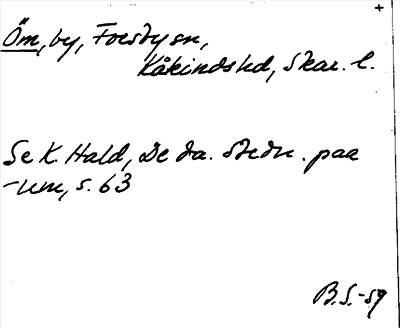 Öm, by, Forsby sn,
Kåkinds hd, Skar. l.
Se K. Hald, De da. stedn. paa
-um, s. 63
B.S.-59